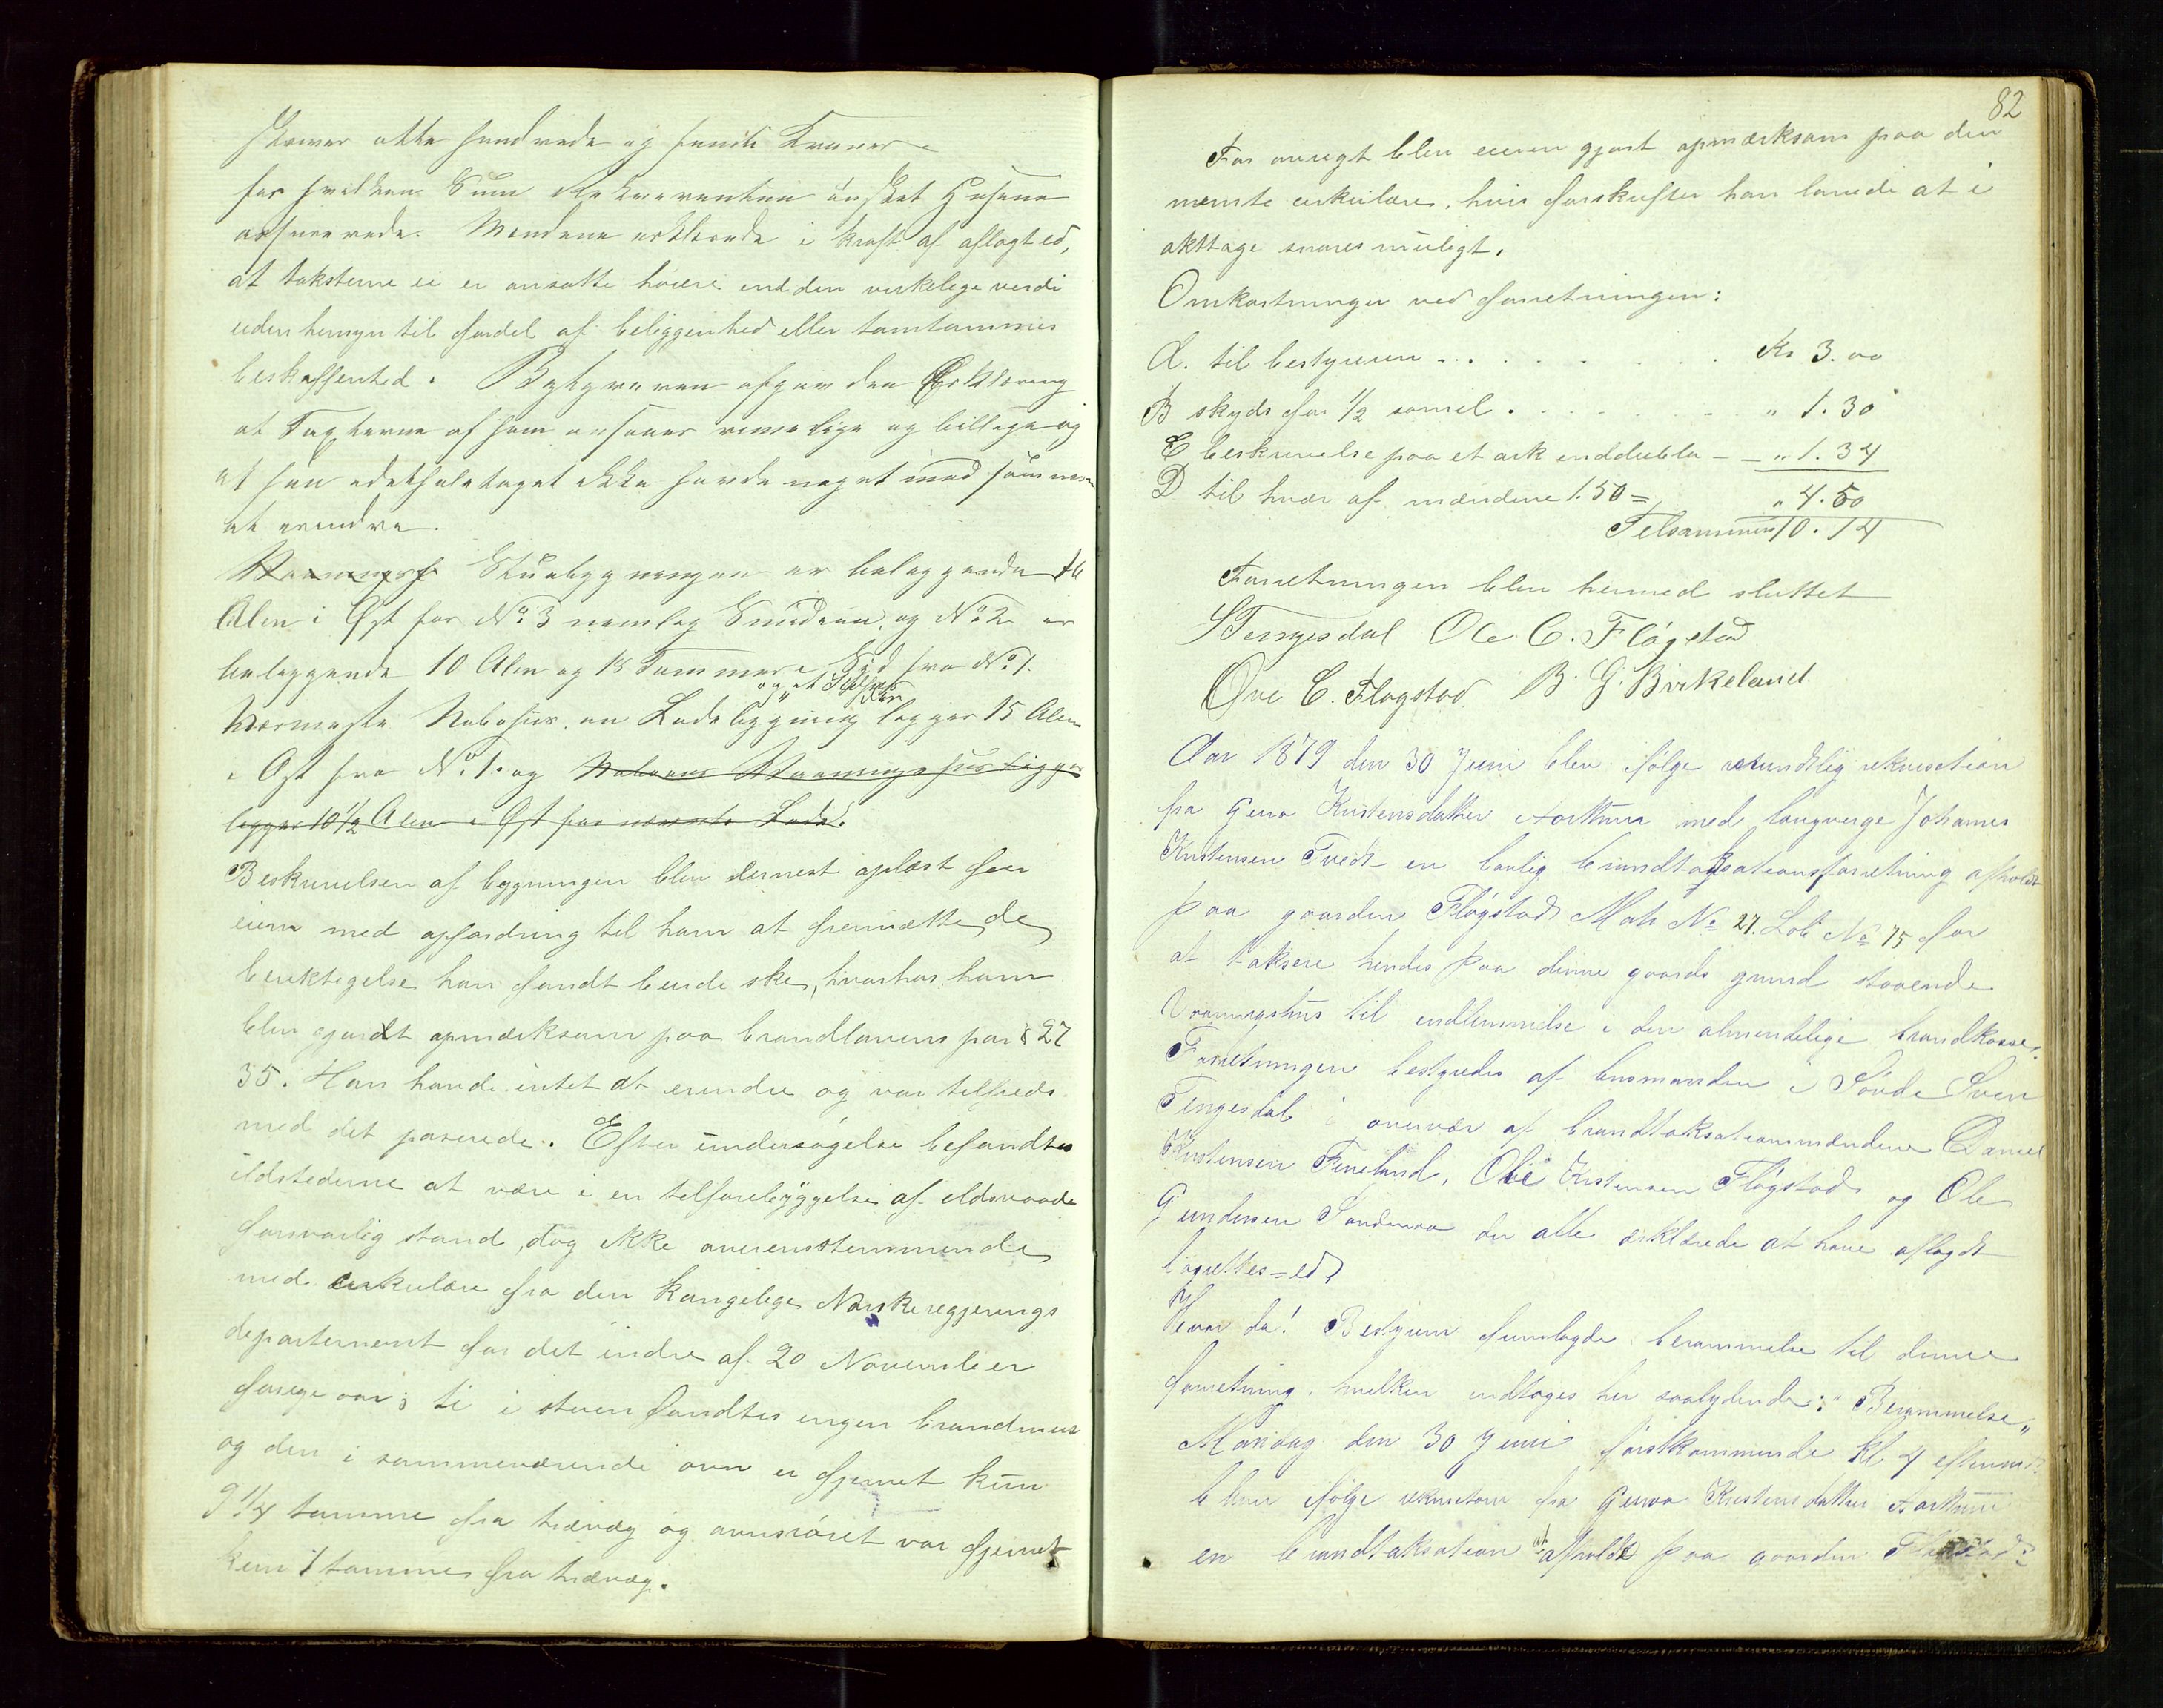 skriver otte hundrede og femti Kroner
for hvilken Sum Rekvirenten ønsket Husene
assurerede. Mændene erklærede i kraft af aflagt ed,
at taksterne ei er ansatte høiere end den virkelege verdi
uden hensyn til fordel af beliggenhed eller tomtammes
beskaffenhed. Bestyreren afgav den Erklæring
at Taxterne af ham ansees rimelige og billige og
at han idethelataget ikke havde noget med sammen
at erindre.
Vaaningsh Stuebygningen er beliggende 16
Alen i Øst for No 3 nemlig Smidien, og No 2 er
beliggende 10 Alen og 18 Tommer i Syd fra No 1.
Nærmeste Nabohus en Ladebygning ligger 15 Alen
i Øst fra No 1. og Naboens Vaaningshus ligger
ligger 10 1/2 Alen i Øst fra nævnte Lade.
Beskrivelsen af bygningen blev dernest oplæst for
eieren med opfordring til ham at fremsætte de
beriktegelse han fandt burde ske, hvorhos ham
blev gjordt opmerksom paa brandlovens par § 27
35. Han havde intet at erindre og var telfreds
med det paserede. Efter undersøgelse befandtes
ildstederne at være i en telforebyggelse af eldsvaade
forsvarlig stand, dog ikke overensstemmende
med cirkulære fra den kongelige Norske regjerings
departement for det indre af 20 November
forrige aar; ti i stuen fandtes ingen brandmur
og den i sammeværende ovn er fjernet kun
9 1/4 tomme fra trævæg og ovnsrøret var fjernet
kun 7 tommer fra trævæg.
82
For øvrigt blev eieren gjort opmærksom paa den
nævnte cirkulære, hvis forskrifter han lovede at i
akttage snarest muligt.
Omkostninger ved forretningen:
A. til bestyreren - . . . . . . Kr 3.00
B skyds for 1/2 somil . . . . . " 1.30
C beskrivelse paa et ark inddubla - - " 1.34
D til hver af mændene 1.50 = " 4.50
Telsammen 10.14
Forretningen blev hermed sluttet
S Tengesdal Ole C. Fløgstad
Ove C. Flogstad. B. G. Birkeland.
Aar 1879 den 30 Juni blev ifølge mundtlig rekvisition
fra Guro Kristensdatter Aarthun med laugverge Johannes
Kristensen Tvedt en lovlig brandtaksationsforretning afholdt
paa gaarden Fløgstad Matr No 27. Løb No 75 for
at taksere hendes paa denne gaards grund staaende
Vaaningshus til indlemmelse i den almendelige brandkasse.
Forretningen bestyredes af lensmanden i Søvde Sven
Tengesdal i overvær af brandtaksationsmændene Daniel
Kristensen Fineland, Ole Kristensen Fløgstad og Ole
Gundersen Sandvera der alle erklærede at have aflagdt
lagrettes-ed.
Hvor da! Bestyreren fremlagde berammelse til denne
forretning, hvilken indtages her saalydende: "Berammelse"
Mandag den 30 Juni førstkommende kl 4 efterm
blev ifølge rekvisition fra Guro Kristensdatter Aarthun
en brandtaksation at afholde paa gaarden Fløgstad